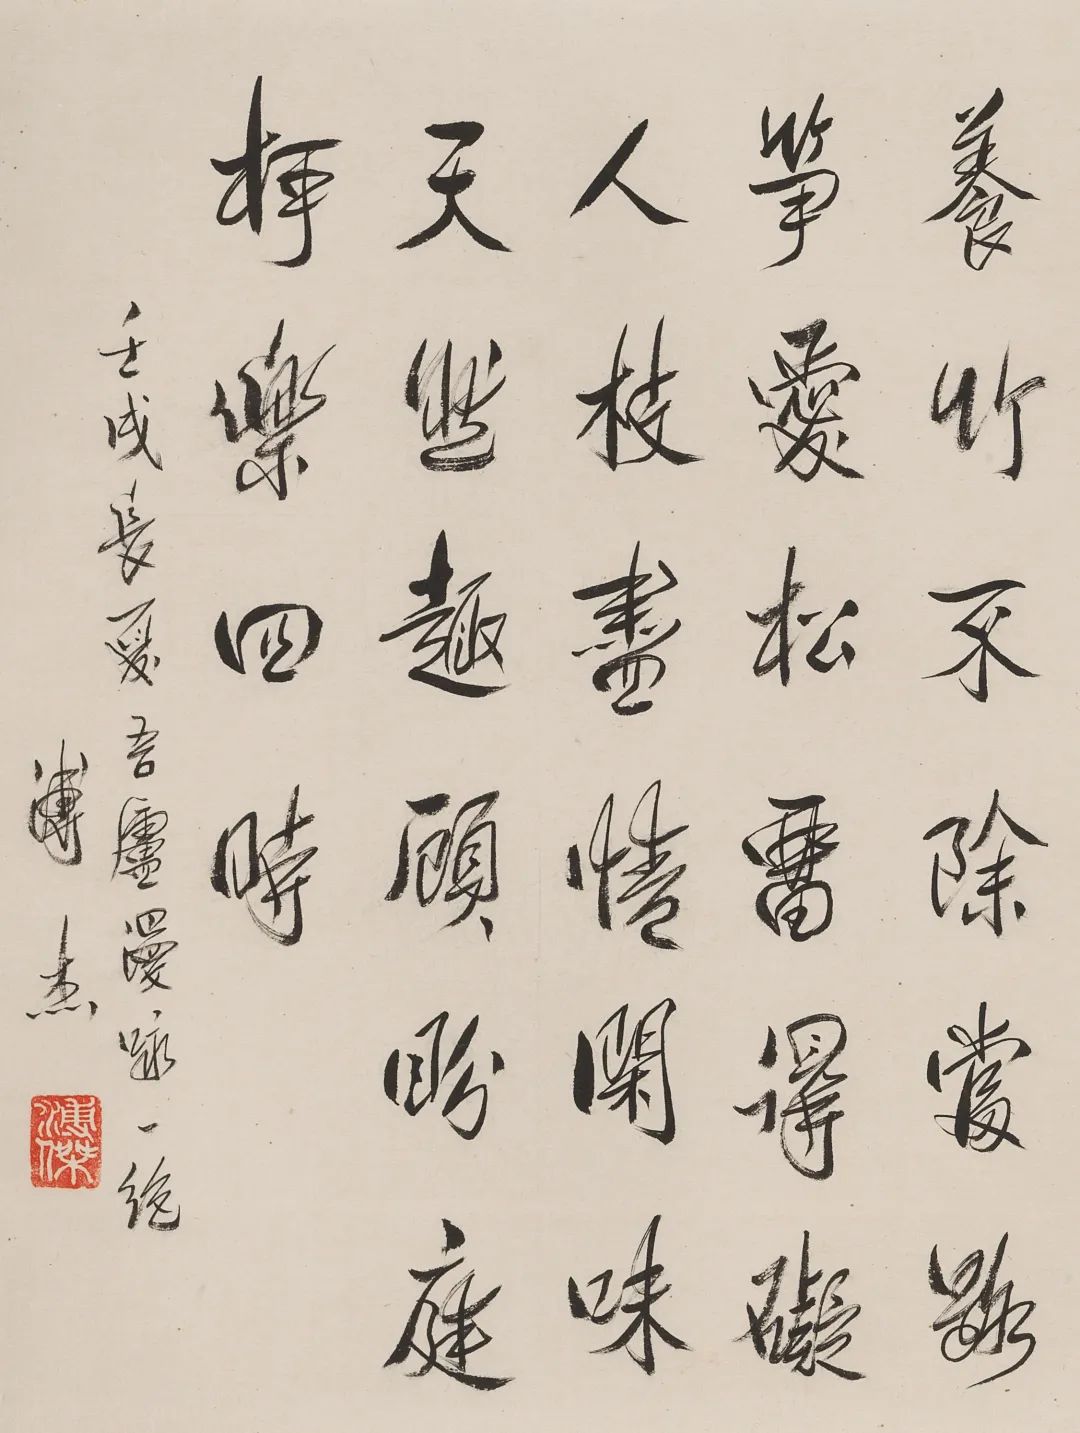 養竹不除當路
筍愛松留得礙
人枝盡情閑味
天然趣顧盼庭
擇樂四時
壬戌長夏吾廬漫詠一絕
溥杰
溥傑